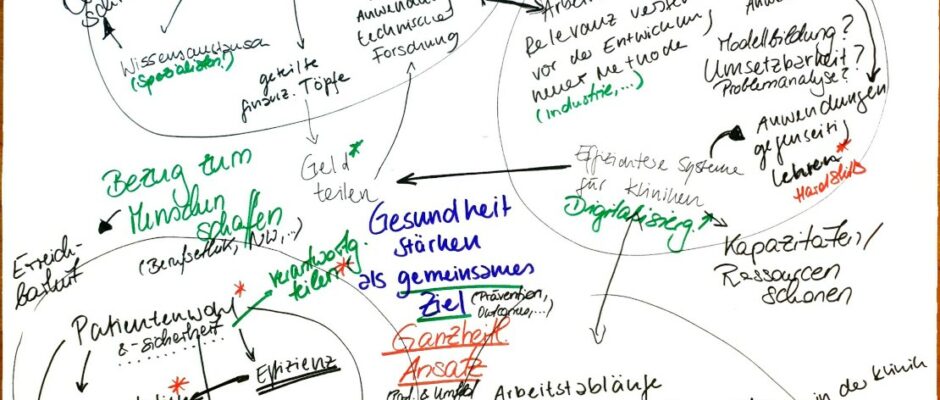 Wissensaustausch
(Spezialisten!)
geteilte
finanz. Töpfe
technischer
Forschung
Relevanz
vor der Entwicklung
neuer Methode
(Industrie,...)
Modellbildung?
Umsetzbarkeit?
Problemanalyse?
Anwendungen
gegenseitig
lehren *
Hardskills
Geld *
teilen
Effizientere Systeme
für Kliniken
Digitalisierg.
Kapazitäten/
Ressourcen
schonen
Bezug zum
Menschen
schaffen
(Berufsethik, NW,...)
Erreich-
barkeit
verantwortg.
teilen *
Gesundheit
stärken
als gemeinsames
Ziel (Prävention,
Outcomes,...)
Ganzheitl.
Ansatz
Patientenwohl *
& -Sicherheit
Effizienz
Arbeitsabläufe
in der Klinik